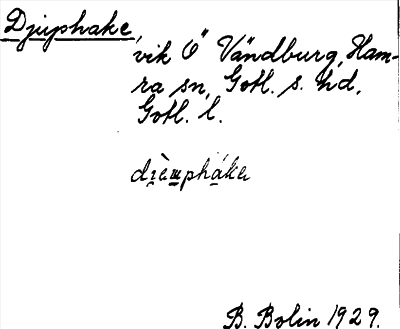 Djuphake,
vik Ö Vändburg, Ham-
ra sn, Gotl. s. hd,
Gotl. l.
B. Bolin 1929.